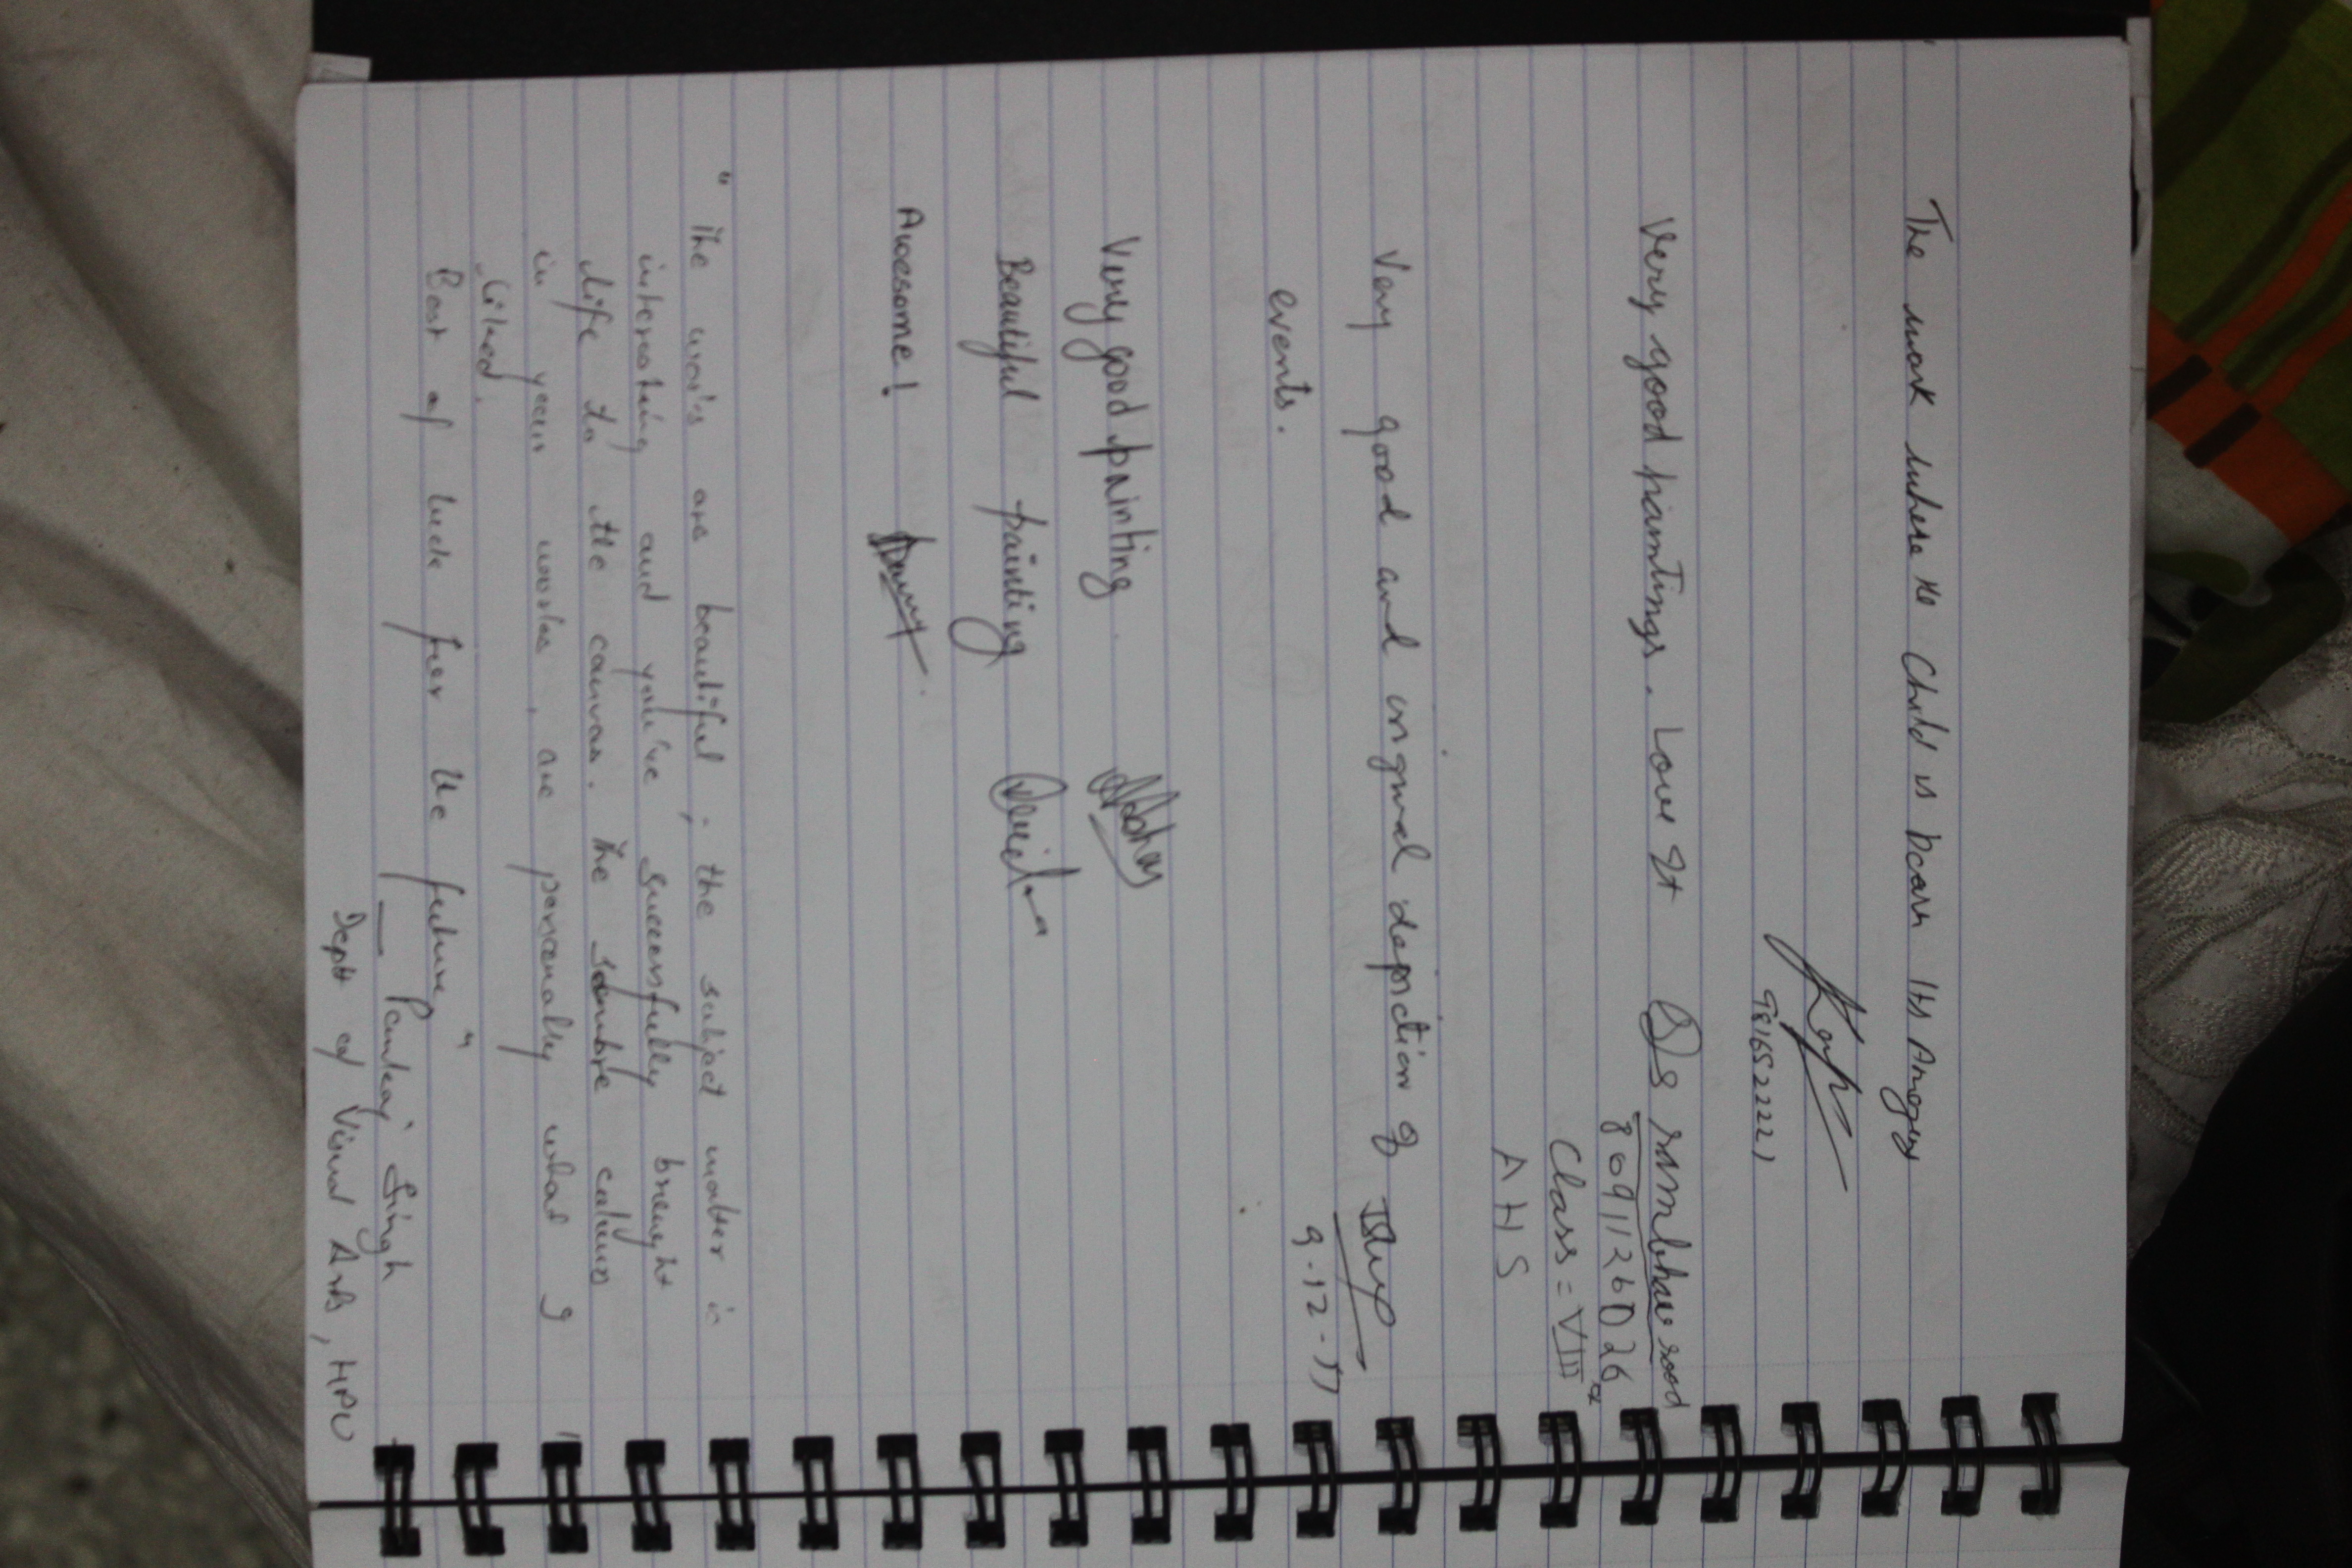 The work where the Child is born Its Amazing
9816522221
Very good paintings. Love It
8091126026
Class = VIII
A H S
Very good and original depiction of
events.
9-12-17
Very good painting
Beautiful painting
Awesome!
" The works are beautiful ; the subject matter is
interesting and you've successfully brought
life to the canvas. The sombre colours
in your works, are personally what I
liked.
Best of luck for the future "
— Pankaj Singh
Deptt of Visual Arts, HPU